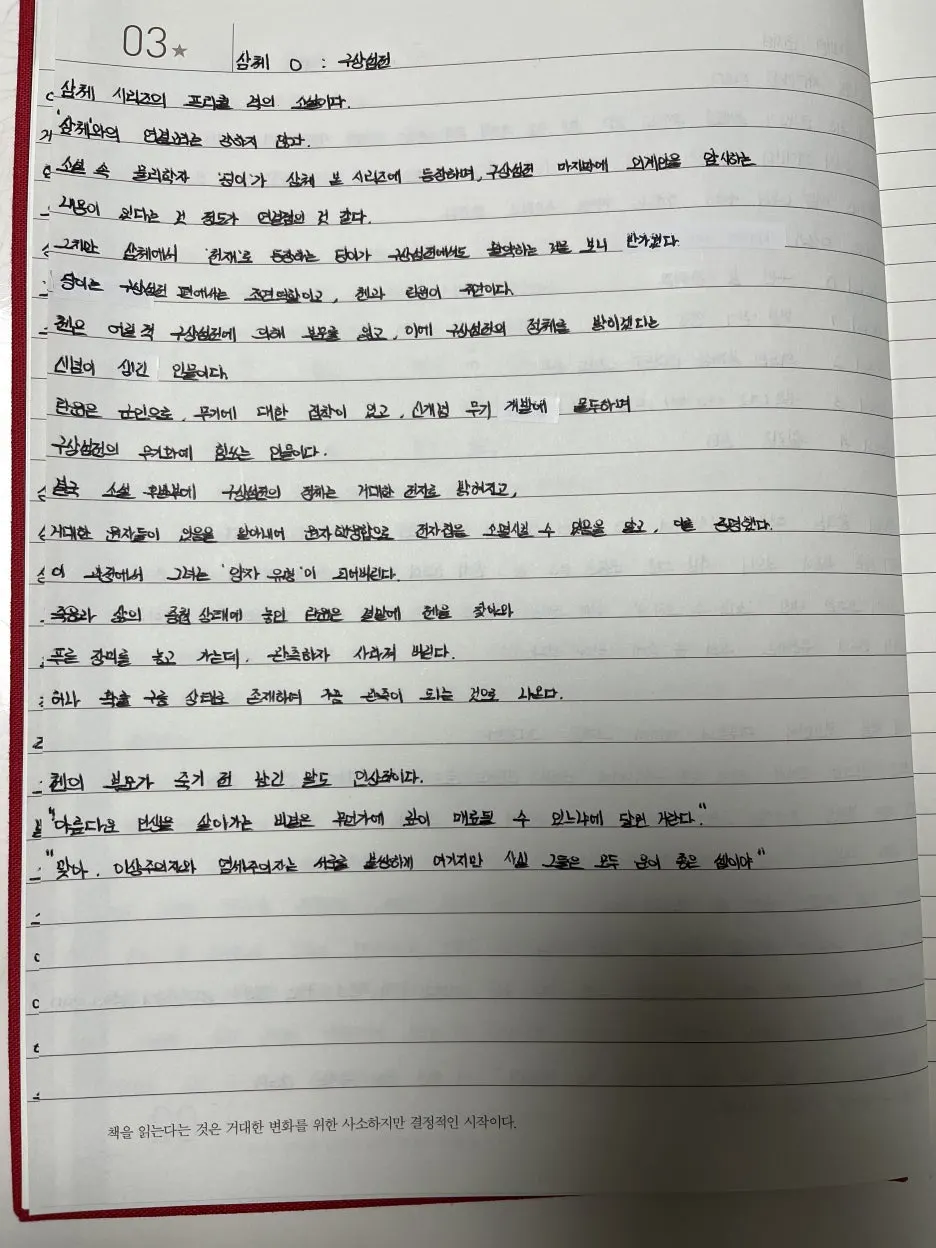 03★
삼체 0 : 구상섬전
삼체 시리즈의 프리퀄 격의 소설이다.
'삼체'와의 연결고리는 강하지 않다.
소설 속 물리학자 '딩이'가 삼체 본 시리즈에 등장하며, 구상섬전 마지막에 외계인을 암시하는
내용이 있다는 것 정도가 연결점인 것 같다.
그치만 삼체에서 '천재'로 등장하는 딩이가 구상섬전에서도 활약하는 것을 보니 반가웠다.
딩이는 구상섬전 편에서는 조연역할이고, 첸과 린윈이 주연이다.
첸은 어릴 적 구상섬전에 의해 부모를 잃고, 이에 구상섬전의 정체를 밝히겠다는
신념이 생긴 인물이다.
린윈은 군인으로, 무기에 대한 집착이 있고, 신개념 무기 개발에 몰두하며
구상섬전의 무기화에 힘쓰는 인물이다.
결국 소설 후반부에 구상섬전의 정체는 거대한 전자로 밝혀지고,
거대한 원자들이 있음을 알아내어 원자핵융합으로 전자칩을 소멸시킬 수 있음을 알고, 이를 증명했다.
이 과정에서 그녀는 '양자 유령'이 되어버린다.
죽음과 삶의 중첩 상태에 놓인 린윈은 결말에 첸을 찾아와
푸른 장미를 놓고 가는데, 관측하자 사라져 버린다.
확률 구름 상태로 존재하며 가끔 관측이 되는 것으로 나온다.
첸의 부모가 죽기 전 남긴 말도 인상적이다.
"아름다운 인생을 살아가는 비결은 무언가에 깊이 매료될 수 있느냐에 달린 거란다."
"맞아. 이상주의자와 염세주의자는 서로를 불쌍하게 여기지만 사실 그들은 모두 운이 좋은 셈이야"
책을 읽는다는 것은 거대한 변화를 위한 사소하지만 결정적인 시작이다.